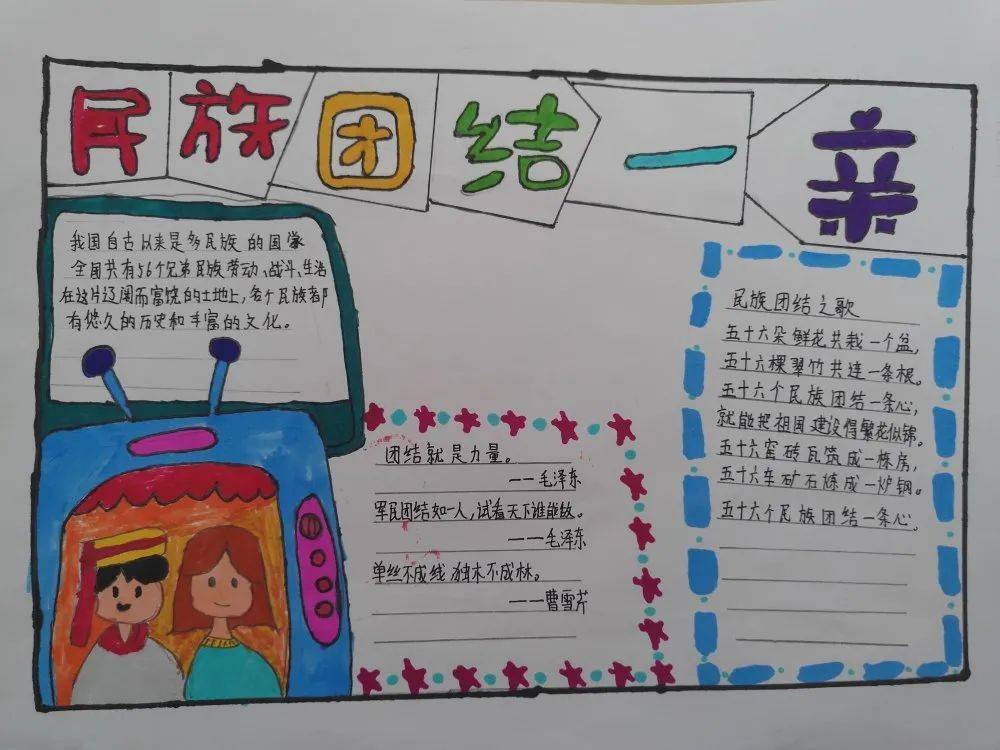 民族团结一亲
我国自古以来是多民族的国家
全国共有56个兄弟民族劳动、战斗、生活
在这片辽阔而富饶的土地上,各个民族都
有悠久的历史和丰富的文化。
团结就是力量。
——毛泽东
军民团结如一人,试看天下谁能敌。
——毛泽东
单丝不成线 独木不成林。
——曹雪芹
民族团结之歌
五十六朵鲜花共栽一个盆,
五十六棵翠竹共连一条根。
五十六个民族团结一条心,
就能把祖国建设得繁花似锦。
五十六窑砖瓦筑成一栋房,
五十六车矿石炼成一炉钢。
五十六个民族团结一条心。